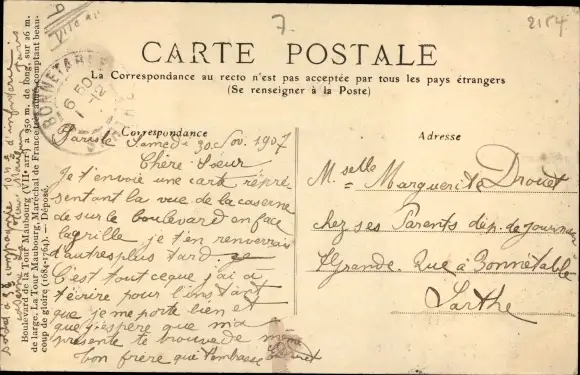 7.
2154
CARTE POSTALE
La Correspondance au recto n'est pas acceptée par tous les pays étrangers
(Se renseigner à la Poste)
Correspondance
Adresse
BONNETABLE
Paris le Samedi 30 Nov. 1907
Chère Sœur
Je t'envoie une carte repré
sentant la vue de la caserne
de sur le boulevard en face
la grille je t'en renverrais
d'autres plus tard.
C'est tout ce que j'ai a
t'écrire pour l'instant
que je me porte bien et
que j'espère que ma
présente te trouve de même
ton frère qui t'embrasse Drouet
Mselle Marguerite Drouet
chez ses Parents dép. de journaux
Grande Rue à Bonnétable
Sarthe
Boulevard de la Tour Maubourg (VIIe arrt) a 950 m. de long, sur 26 m.
de large. La Tour Maubourg, Maréchal de France très aimé, comptant beau-
coup de gloire (1684-1764). — Déposé.
soldat a 3e compagnie 104e d'infanterie
caserne Paris